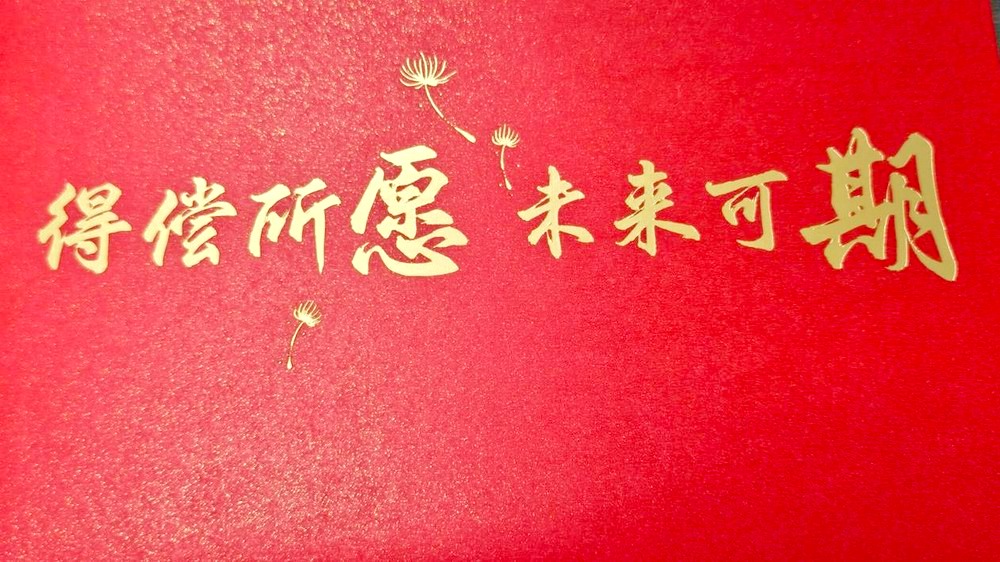 得偿所愿 未来可期